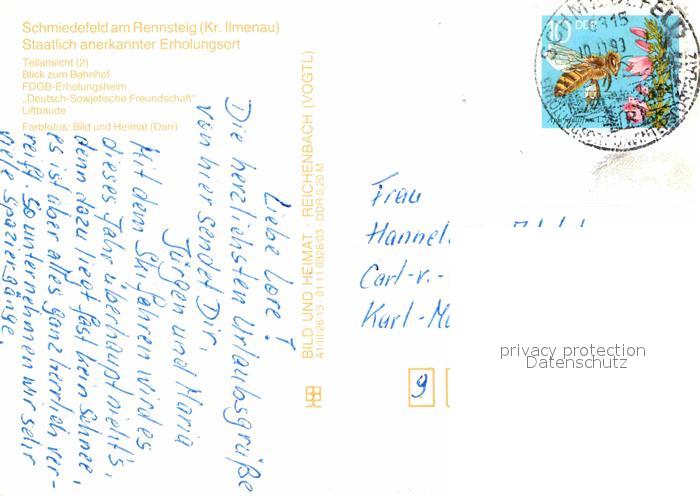 Schmiedefeld am Rennsteig (Kr. Ilmenau)
Staatlich anerkannter Erholungsort
Teilansicht (2)
Blick zum Bahnhof
FDGB-Erholungsheim
„Deutsch-Sowjetische Freundschaft"
Liftbaude
Farbfotos: Bild und Heimat (Darr)
Liebe Lore!
Die herzlichsten Urlaubsgrüße
von hier sendet Dir,
Jürgen und Maria
Mit dem Skifahren wird es
dieses Jahr überhaupt nicht's,
denn dazu liegt fast kein Schnee,
es ist aber alles ganz herrlich ver-
reift. So unternehmen wir sehr
viele Spaziergänge.
BILD UND HEIMAT · REICHENBACH (VOGTL)
A1/III/26/13 01 11 0328/03 DDR 0,20 M
10 DDR
Frau
Hannel
Carl-v.-
Karl-Ma
9
privacy protection
Datenschutz